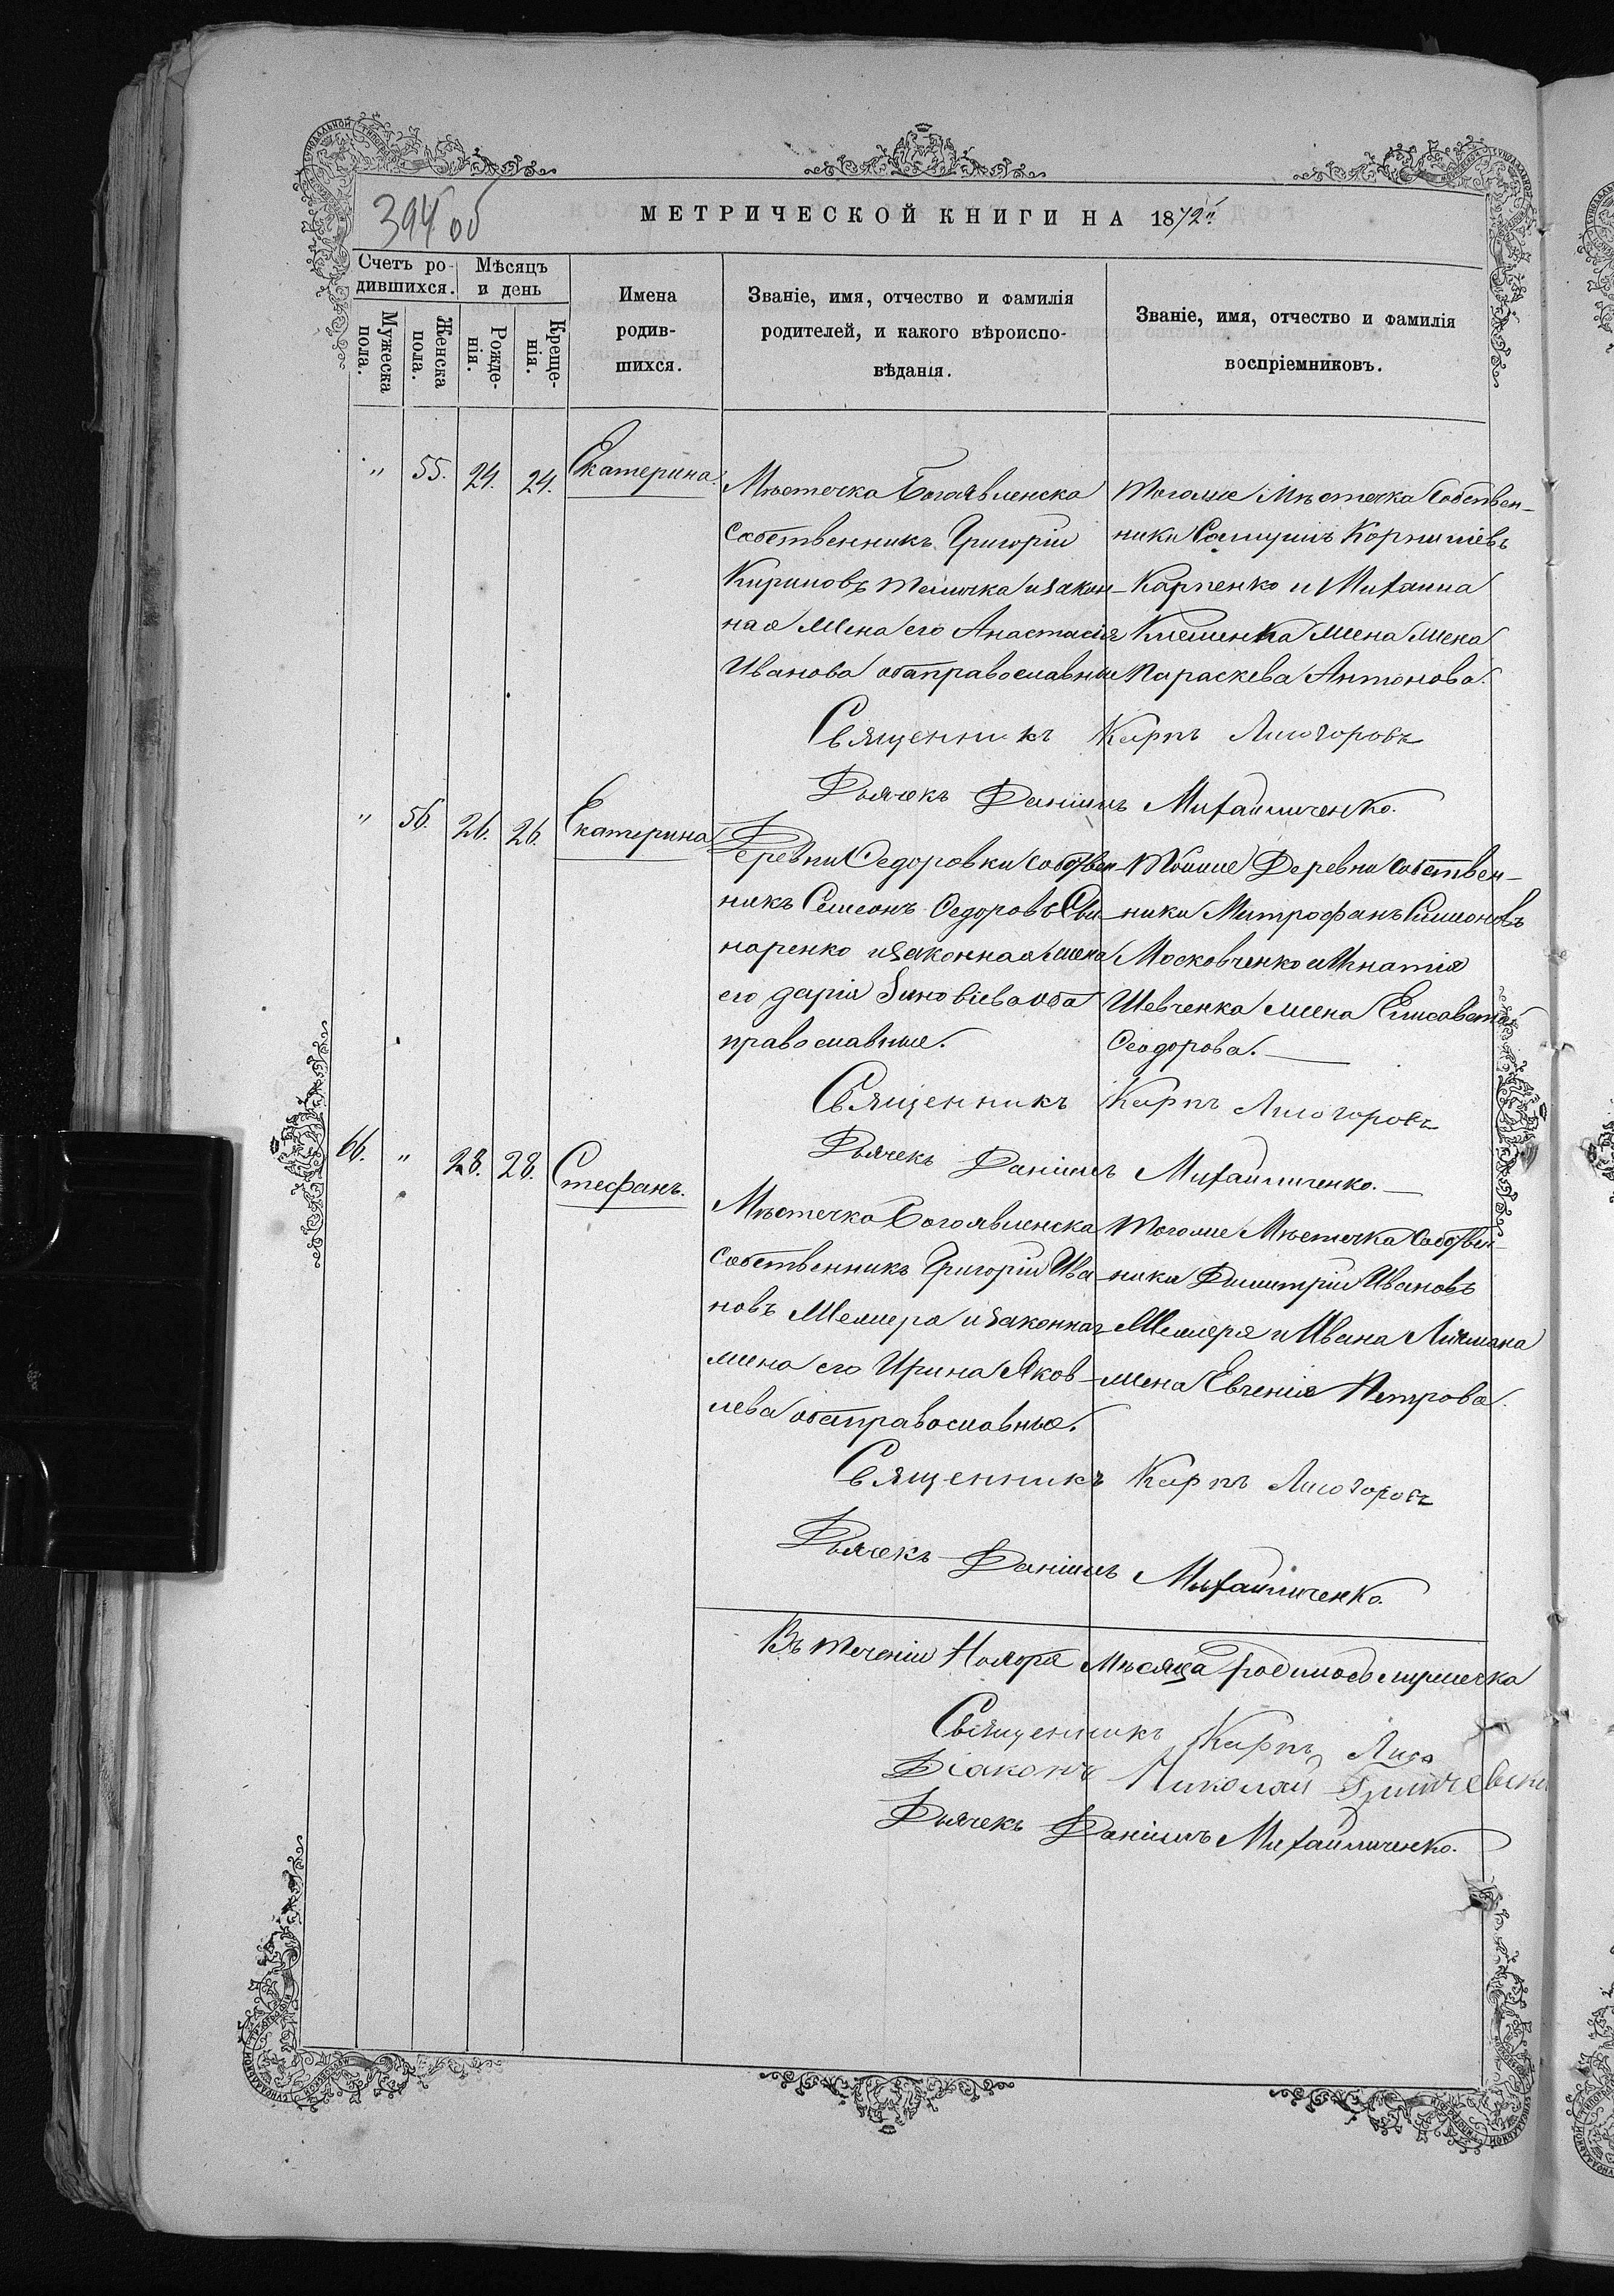 394 об
МЕТРИЧЕСКОЙ КНИГИ НА 1872й
Счетъ ро-
дившихся.
Мѣсяцъ
и день
Мужеска
пола.
Женска
пола.
Рожде-
нія.
Креще-
нія.
Имена
родив-
шихся.
Званіе, имя, отчество и фамилія
родителей, и какого вѣроиспо-
вѣданія.
Званіе, имя, отчество и фамилія
воспріемниковъ.
" 55. 24. 24. Екатерина.
Мѣстечка Богоявленска
собственникъ Григорій
Кириловъ и закон-
ная жена его Анастасія
Иванова оба православные
Тогоже Мѣстечка Собствен-
ники Самуилъ Корниліевъ
Карпенко и Михаила
Клеменка жена
Параскева Антонова.
Священникъ Карпъ Лисогоровъ
Дьячекъ Даніилъ Михайличенко.
" 56. 26. 26. Екатерина
Деревни Ѳедоровки собствен-
никъ Семеонъ Ѳедоровъ Сви-
наренко и законная жена
его Дарія Зиновіева оба
православные.
Тойже Деревни собствен-
ники Митрофанъ Симоновъ
Московченко и Игнатія
Шевченка жена Елисавета
Ѳеодорова.
Священникъ Карпъ Лисогоровъ
Дьячекъ Даніилъ Михайличенко.
66. " 28. 28. Стефанъ.
Мѣстечка Богоявленска
собственникъ Григорій Ива-
новъ Шемшера и законная
жена его Ирина Яков-
лева оба православные.
Тогоже Мѣстечка Собствен-
ники Димитрій Ивановъ
и Ивана
жена Евгенія Петрова.
Священникъ Карпъ Лисогоровъ
Дьячекъ Даніилъ Михайличенко.
Въ теченіи Ноября Мѣсяца родилось
Священникъ Карпъ Лисо
Діаконъ Николай
Дьячекъ Даніилъ Михайличенко.